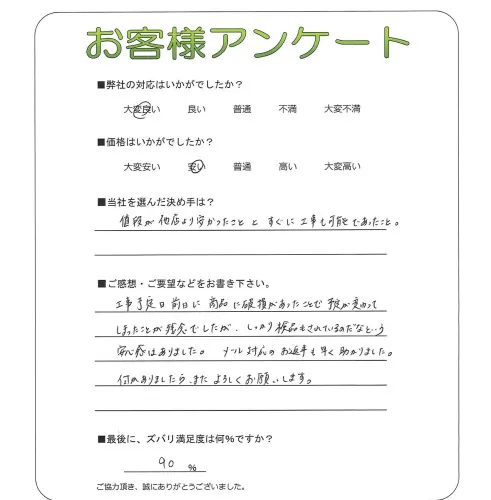 お客様アンケート
■弊社の対応はいかがでしたか？
大変良い 良い 普通 不満 大変不満
■価格はいかがでしたか？
大変安い 安い 普通 高い 大変高い
■当社を選んだ決め手は？
値段が他店より安かったこと と すぐに工事も可能であったこと。
■ご感想・ご要望などをお書き下さい。
工事予定日前日に商品に破損があったことで予定が変わって
しまったことが残念でしたが、しっかり検品もされているのだなという
安心感はありました。メール対応のお返事も早く助かりました。
何かありましたら、またよろしくお願いします。
■最後に、ズバリ満足度は何%ですか？
90 %
ご協力頂き、誠にありがとうございました。